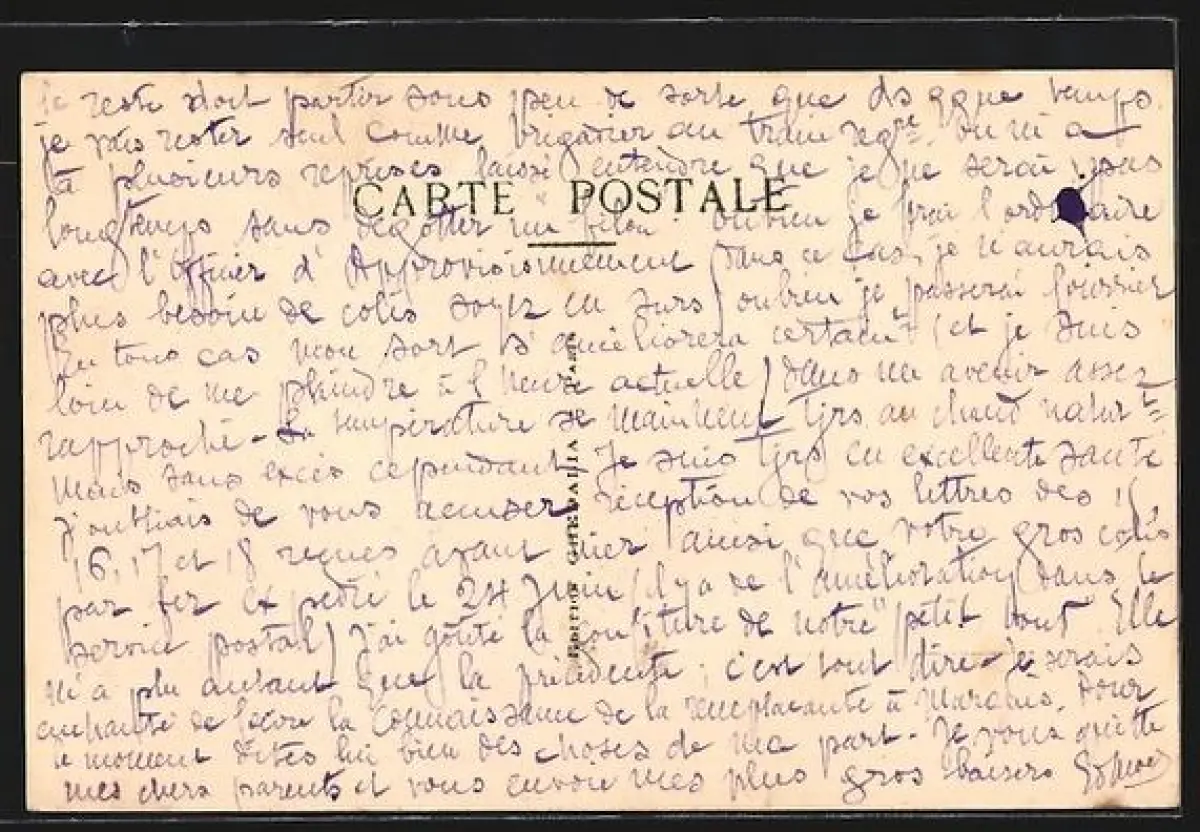 le reste doit partir sous peu de sorte que ds qque temps
je vais rester seul comme brigadier au train regre. on m'a
là plusieurs reprises laissé entendre que je ne serai pas
CARTE POSTALE
longtemps sans dégotter un filon ou bien je ferai l'ordinaire
avec l'Officier d'Approvisionnement (dans ce cas, je n'aurais
plus besoin de colis soyez en surs) ou bien je passerai fourrier
En tous cas mon sort s'améliorera certaint (et je suis
loin de me plaindre à l'heure actuelle) dans un avenir assez
rapproché - La température se maintient tjrs au chaud naturt
mais sans excès cependant. Je suis tjrs en excellente santé
J'oubliais de vous accuser réception de vos lettres des
16, 17 et 18 reçues avant hier ainsi que votre gros colis
par fer expédié le 24 Juin (il y a de l'amélioration dans le
service postal) J'ai goûté la confiture de notre "petit bout". Elle
m'a plu autant que la précédente ; c'est tout dire - Je serais
enchanté de faire la connaissance de la remplaçante à Marquis. Pour
le moment dites lui bien des choses de ma part - Je vous quitte
mes chers parents et vous envoie mes plus gros baisers
EDITION GHEBALIA PARIS